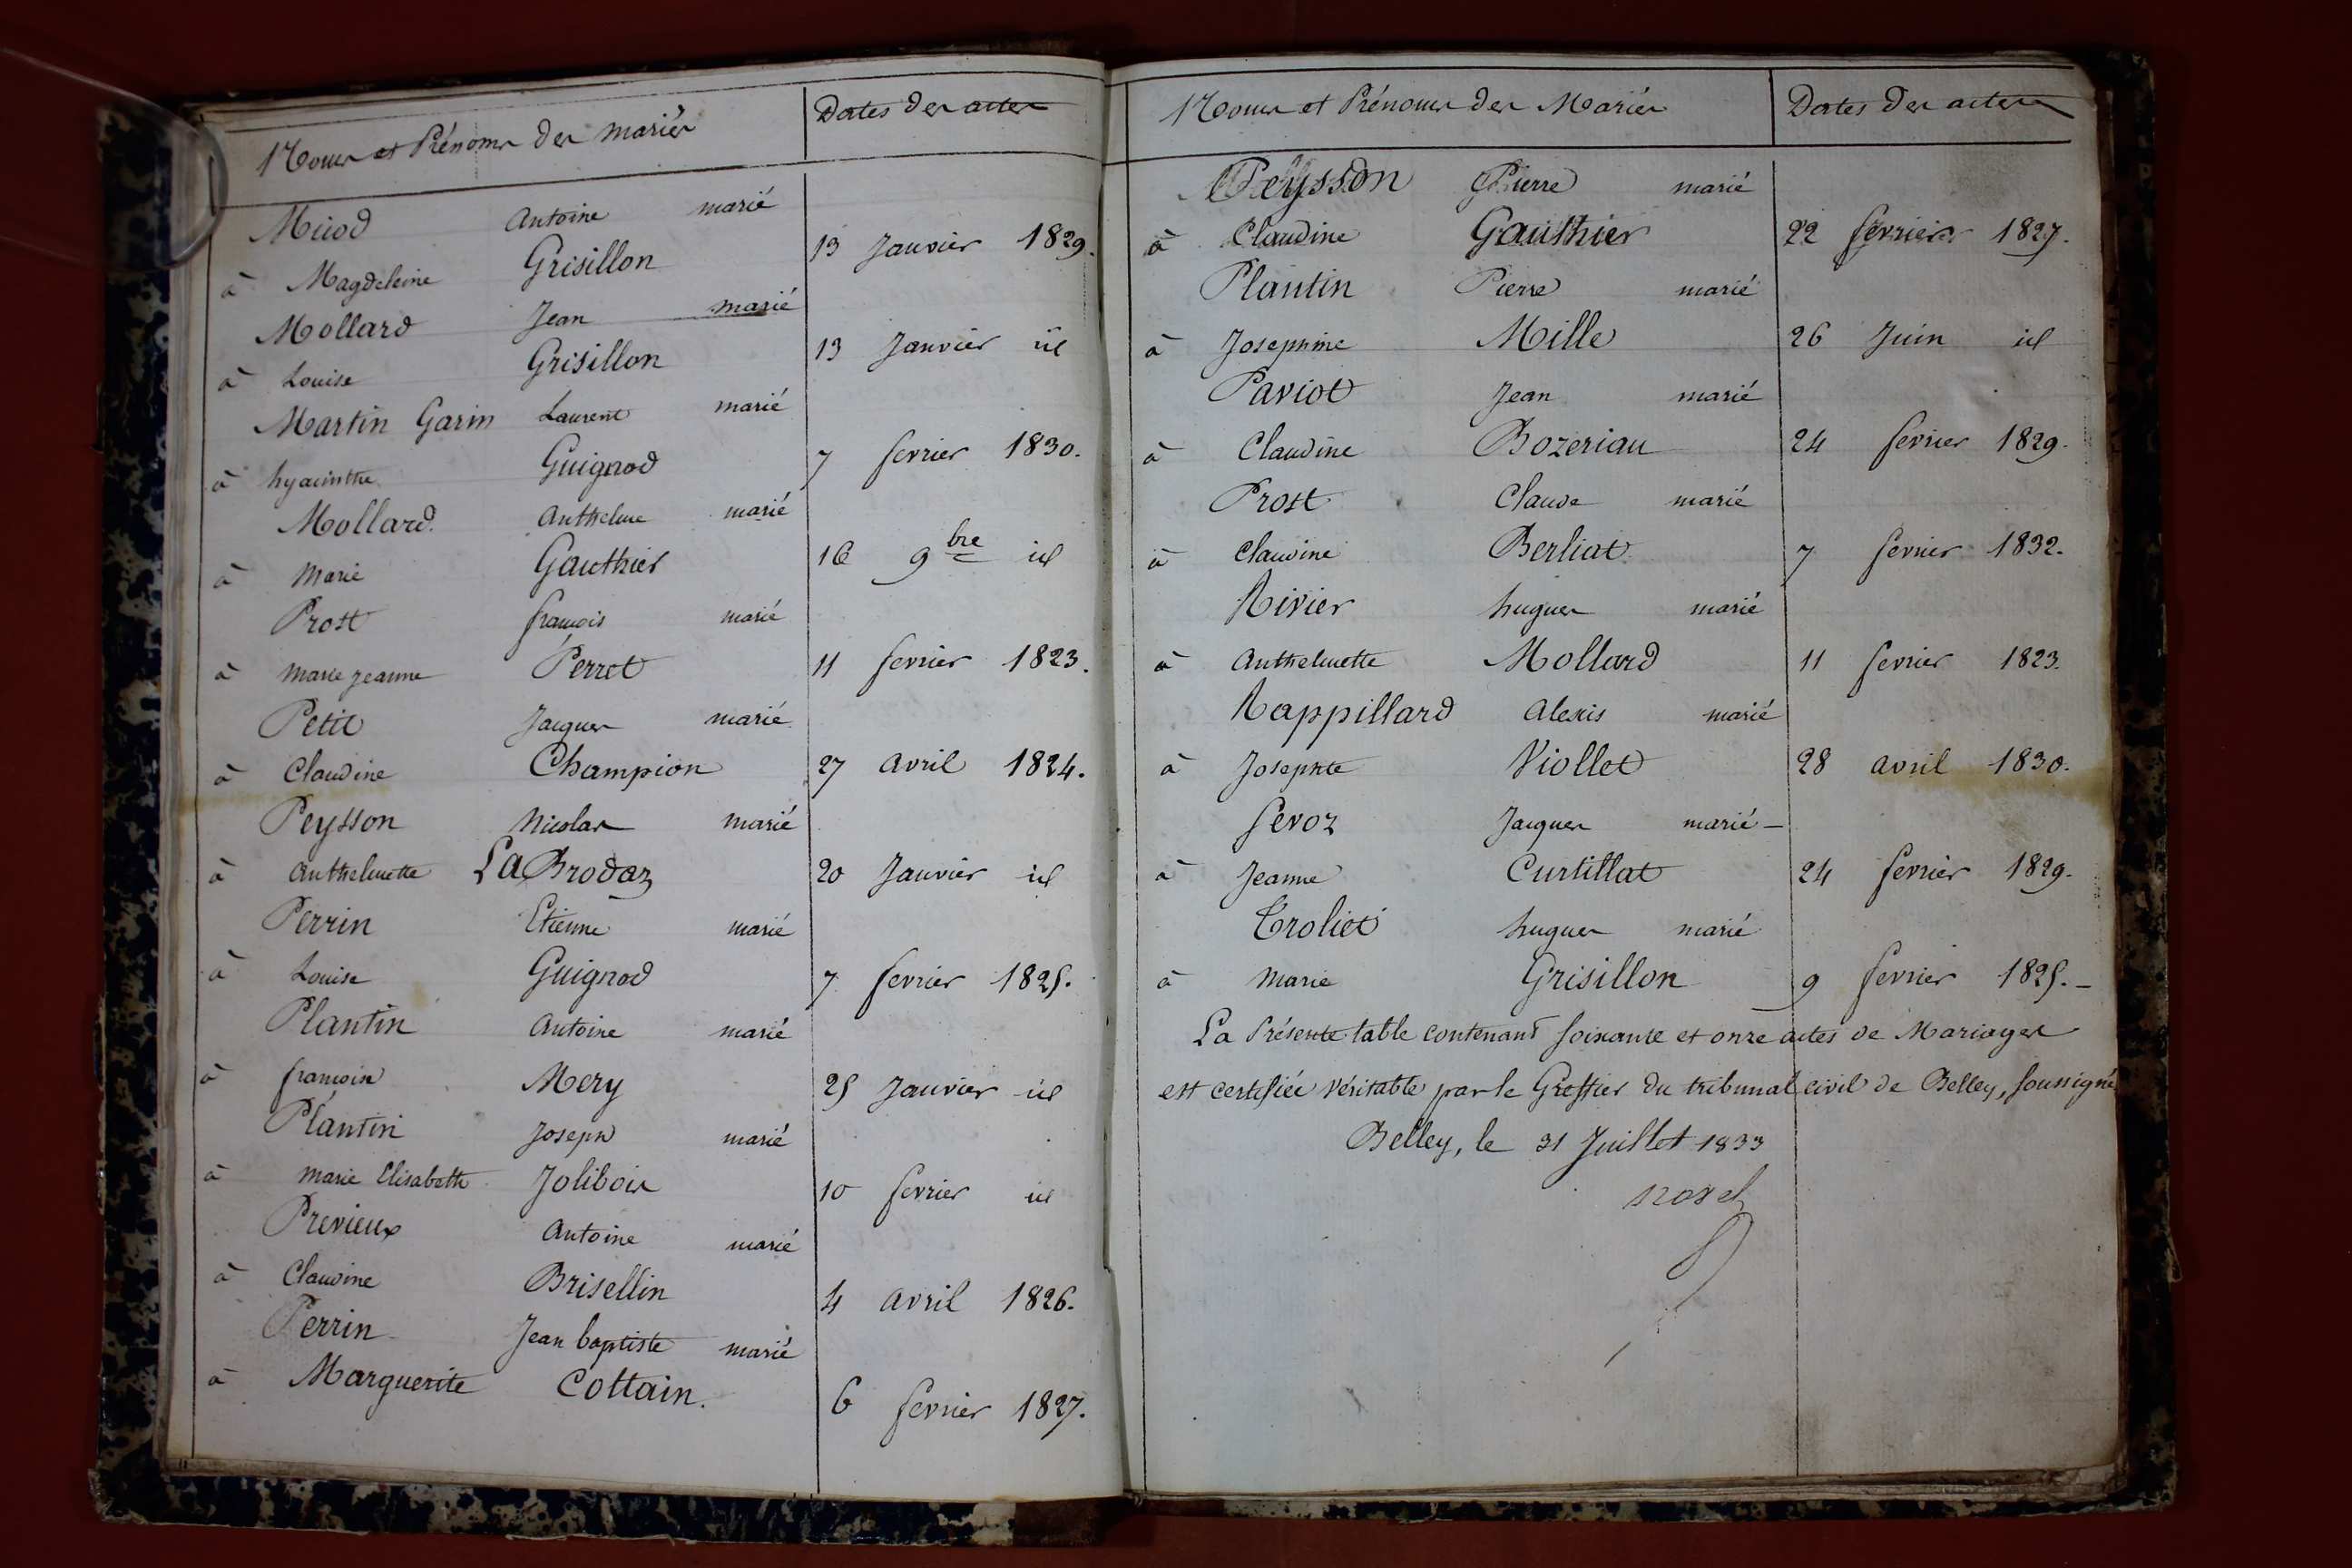 Noms et Prénoms des mariés Dates des actes
Miod Antoine marié
à Magdeleine Grisillon 13 Janvier 1829.
Mollard Jean marié
à Louise Grisillon 13 Janvier id
Martin Garin Laurent marié
à hyacinthe Guignod 7 fevrier 1830.
Mollard Anthelme marié
à Marie Gauthier 16 9bre id
Prost françois marié
à Marie jeanne Perret 11 fevrier 1823.
Petit Jacques marié
à Claudine Champion 27 Avril 1824.
Peysson Nicolas marié
à Anthelmette La Brodaz 20 Janvier id
Perrin Etienne marié
à Louise Guignod 7 fevrier 1825.
Plantin Antoine marié
à Mery 25 Janvier id
Plantin Joseph marié
à Marie Elisabeth Jolibois 10 fevrier id
Previeux Antoine marié
à Claudine Brisellin 4 Avril 1826.
Perrin Jean baptiste marié
à Marguerite Cottain. 6 fevrier 1827.
Noms et Prénoms des Mariés Dates des actes
Peysson Pierre marié
à Claudine Gauthier 22 fevrier 1827.
Plantin Pierre marié
à Josephine Mille 26 Juin id
Paviot Jean marié
à Claudine Bozeriau 24 fevrier 1829.
Prost Claude marié
à Claudine Berliat 7 fevrier 1832.
Rivier hugues marié
à Anthelmette Mollard 11 fevrier 1823.
Rappillard Alexis marié
à Josephte Viollet 28 avril 1830.
Sevoz Jacques marié –
à Jeanne Curtillat 24 fevrier 1829.
Troliet hugues marié
à Marie Grisillon 9 fevrier 1825. –
La Présente table contenant soixante et onze actes de Mariages
est certifiée véritable par le Greffier du tribunal civil de Belley, soussigné
Belley, le 31 Juillet 1833